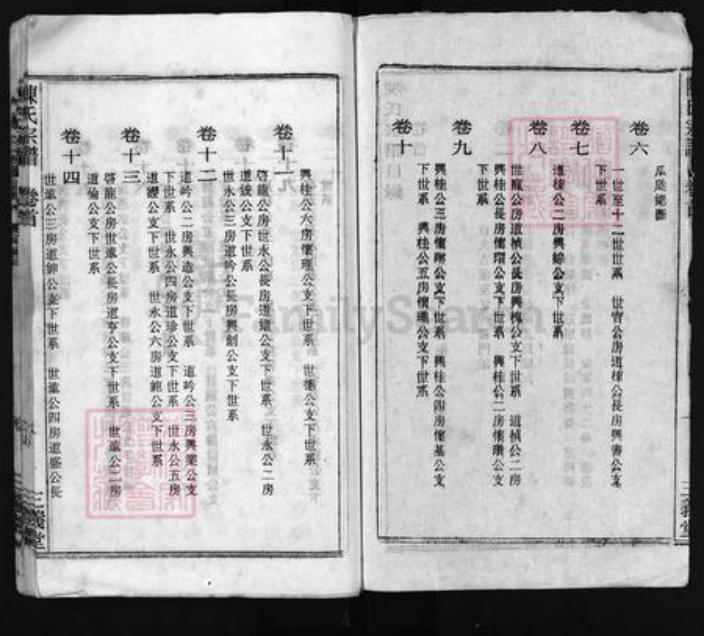 卷六
瓜瓞綿綿
一世至十二世世系　世官公房道棟公長房興壽公支
下世系
卷七
道棟公二房興錦公支下世系
卷八
世寵公房道楨公長房興槐公支下世系　道楨公二房
興桂公長房懷環公支下世系　興桂公二房懷瓚公支
下世系
卷九
興桂公三房懷琳公支下世系　興桂公四房懷基公支
下世系　興桂公五房懷璣公支下世系
卷十
興桂公六房懷理公支下世系　世德公支下世系
卷十一
啓龍公房世永公長房道公支下世系　世永公二房
道公支下世系
世永公三房道吟公長房興創公支下世系
卷十二
道吟公二房興造公支下世系　道吟公三房興業公支
下世系　世永公四房道珍公支下世系　世永公五房
道纓公支下世系　世永公六房道公支下世系
卷十三
啓龍公房世遠公長房道亨公支下世系　世遠公二房
道倫公支下世系
卷十四
世遠公三房道紳公支下世系　世遠公四房道盛公長
陳氏宗譜　卷首
三義堂
FamilySearch